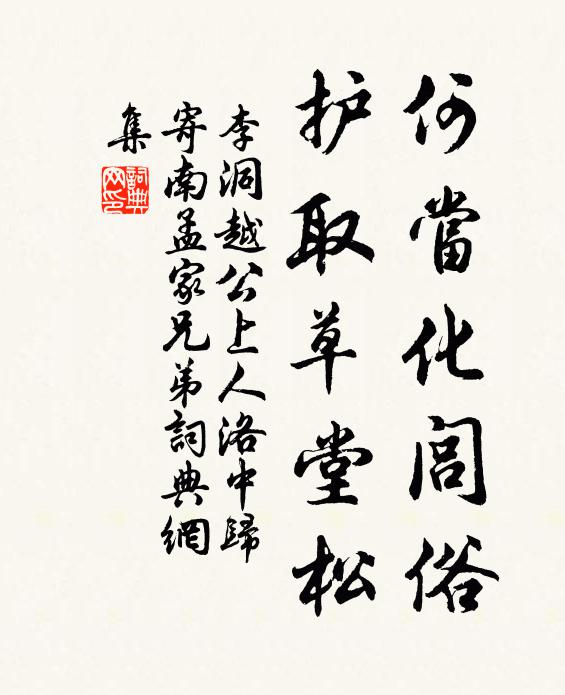 何當化閭俗
护取草堂松
李洞越公上人洛中歸
寄南孟家兄弟詞典網
集
詞典
网印